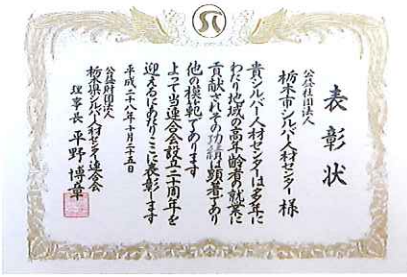 表彰状
公益社団法人
栃木市シルバー人材センター 様
貴シルバー人材センターは多年に
わたり地域の高年齢者の就業に
貢献されその功績は顕著であり
他の模範であります
よって当連合会設立二十周年を
迎えるにあたりここに表彰します
平成二十八年十月二十五日
公益財団法人
栃木県シルバー人材センター連合会
理事長 平野博章